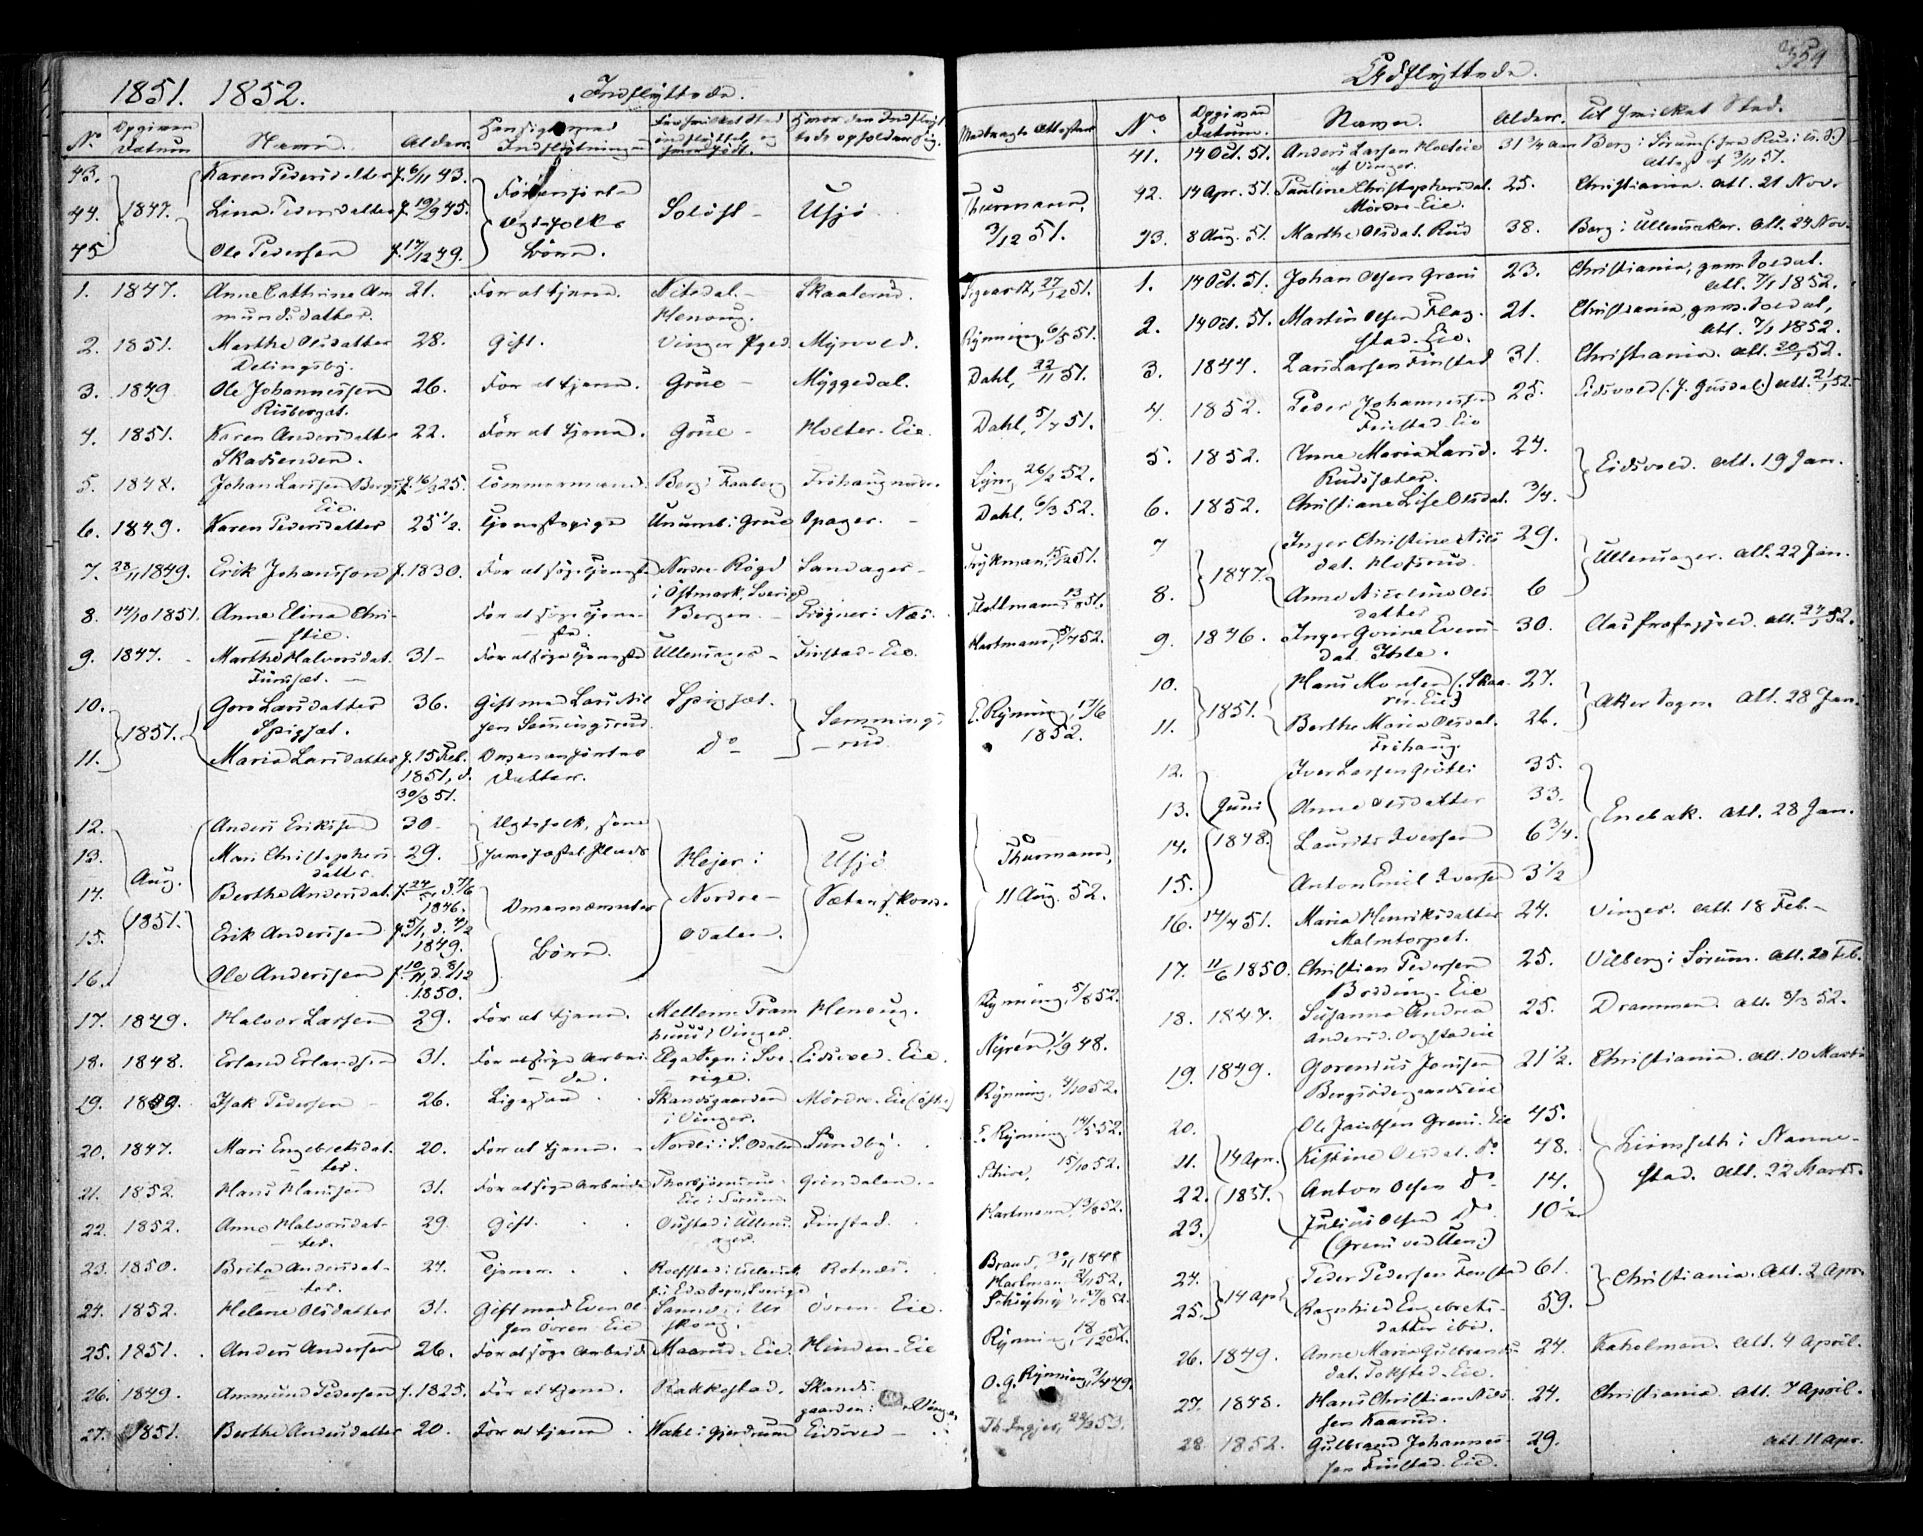 1851. 1852. Indflyttede.
No
Opgiven Datum
Navn.
Alder.
Hensigt med Indflytningen
Fra hvilket Sted indflyttet, og hvor født.
Hvor den Indflyttede opholder sig.
Medbragte Attester
43. Karen Pedersdatter f. 6/11 43.
44. 1847. Lina Pedersdatter f. 19/9 45. Solöst Usjö Thurmann, 3/12 51.
45 Ole Pedersen f. 14/12 49. Börn.
1. 1847. Anne Cathrine Amundsdatter. 21. For at tjene. Nitedal - Skaaterud. 27/12 51.
2. 1851. Marthe Olsdatter 28. Gift. Vinger Pgd. Myrvold. Rynning, 6/5 51.
3. 1849 Ole Johannessen Risberget. 26. For at tjene. Grue - Myggedal. Dahl, 22/11 51.
4. 1851. Karen Andersdatter 22. For at tjene. Grue - Holter-Eie. Dahl, 5/7 51.
5. 1848. Johan Larssen Bergs Eie. f. 16/3 25. Tömmermand. Berg i Faaberg Frihaug Lyng 26/2 52.
6. 1849. Karen Pedersdatter 25 1/2. Tjenestepige i Grue Opager. Dahl, 6/3 52.
7. 28/11 1849. Erik Johanson f. 1830. For at söge Tjeneste Nordre Röged i Östmark, Sverige Sandager - 15/12 51.
8. 14/10 1851. Anne Elina Christie. For at söge Tjeneste. Bergen. Frogner i Næs. 51.
9. 1847. Marthe Halvorsdat. Furuset. 31 - For at söge Tjeneste Ullensager - Finstad-Eie. Hartmann, 5/4 52.
10. Goro Larsdatter Spigset. 36. Gift med Lars Nilsen Semmingsrud. Spigset. Semmingsrud. E. Rynning, 17/6 1852.
11. 1851. Maria Larsdatter f. 15 Feb. 1851, d. 30/3 51. Ovenanförtes Datter. Do
12. Anders Erikssen 30.
13. Mari Christophersdatter 29.
14. Aug. 1851. Berthe Andersdat. f. 24/5, d. 7/6 1846. Ovennævntes Börn. Höjer i Nordre-Odalen. Usjö Sætenskoven. Thurmann, 11 Aug. 52.
15. Erik Anderssen f. 5/1, d. 4/2 1849.
16. Ole Anderssen f. 10/11, d. 8/12 1850.
17. 1849. Halvor Larsen 29. For at tjene. Mellem i Vinger. Henoug. Rynning, 5/8 52.
18. 1848. Erland Erlandsen 31. For at söge Arbeide. Elga Sogn i Sverige. Eidsved. Eie. Nyrén, 1/9 48.
19. 1849. Isak Pedersen 26. Ligesaa Skandsgaarden i Vinger. Mördre-Eie (öst.) Rynning, 4/10 52.
20. 1847. Mari Engebretsdatter. 20. For at tjene. Nordli i S. Odalen Sundby. E. Rynning 14/5 52.
21. 1852. Hans Hansen 31. For at söge Arbeide Eie i Sörum Grindalen. 15/10 52.
22. 1852. Anne Halvorsdatter. 29. Gift. Onstad i Ullensager. Finstad. Hartmann, 13/8 52.
23. 1850. Brita Andersdatter. 24. Tjener. i Eda Sogn, Sverige Rotnes. Brand, 30/11 1848
24. 1852. Helene Olsdatter 31. Gift med Even Olsen Ovren-Eie Sanne i Urskoug. Ovren-Eie.
25. 1851. Anders Andersen 26. For at söge Arbeide Maarud-Eie. Hinden-Eie Rynning, 18/12 52.
26. 1849. Ammund Pedersen f. 1825. For at tjene. Rakkestad. Skandsgaarden i Vinger. O. G. Rynning, 3/4 49.
27. 1851. Berthe Andersdatter 20. For at tjene i Gjerdrum Eidsved -
Udflyttede. 359
No
Opgiven Datum.
Navn.
Alder.
Til hvilket Sted.
41. 14 Oct. 51. Anders Larsen Holteie af Vinger. 31 3/4 aar Berg i Sörum (fra Rud i U.S.) Attest af 3/11 51.
42. 14 Apr. 51. Pauline Christophersdat. Mördre-Eie. 25. Christiania. att. 21 Nov.
43. 8 Aug. 51. Marthe Olsdat. Rud 38. Borg i Ullensaker. Att. 24 Nov.
1. 14 Oct. 51. Johan Olsen Greni 23. Christiania, gem. Soldat. att. 7/1 1852.
2. 14 Oct. 51. Martin Olsen Flagstad-Eie. 21. Christiania, gem. Soldat, att. 7/1 1852.
3. 1844. Lars Larsen Finstad 31. Christiania. att. 20/1 52.
4. 1852. Peder Johannessen Finstad Eie 25. Eidsvold att. 21/1 52.
5. 1852. Anne Maria Larsd. Rudssæter. 24. Eidsvold. att. 19 Jan.
6. 1852. Christiane Lise Olsdat. 3/4.
7 1847. Inger Christine Nilsdat. Hofsrud. 29. Ullensager. att. 22 Jan.
8. Anne Nicoline Olsdatter 6
9. 1846. Inger Gorine Evensdat. Ihle. 30. Aas Præstegjeld. att. 27/1 52.
10. 1851. Hans Morten (Skaareie) 27. Aker Sogn. Att. 28 Jan.
11. Berthe Maria Olsdat. Frihaug. 26.
12. Juni 1848. Iver Larsen Griteli 35. Enebak. att. 28 Jan.
13. Anne Olsdatter 33.
14. Laurits Iversen 6 3/4.
15. Anton Emil Iversen 3 1/2
16. 14/4 51. Maria Henriksdatter Malmtorpet. 24. Vinger. att. 18 Feb.
17. 11/6 1850. Christian Pedersen Brodding-Eie 25. Vilberg i Sörum. att. 20 Feb.
18. 1847. Susanne Andrea Andersd. 25. Drammen. att. 8/3 52.
19. 1849. Gorenius Jonssen 21 1/2. Christiania. att. 10 Marts
20. 14 Apr. 1851. Ole Jacobsen Greni-Eie 45. i Nannestad. att. 22 Marts.
21. Kistine Olsdat. do 48.
22. Anton Olsen do 14.
23. Julius Olsen do (Greni ved Uen.) 10 1/2
24. 14 Apr. Peder Pedersen Finstad 61. Christiania. Att. 2 Apr.
25. Ragnhild Engebretsdatter ibid. 59.
26. 1849. Anne Maria Gulbrandsdat. Tokstad-Eie. 24. Kaholmen. att. 4 April.
27. 1848. Hans Christian Nilssen Kaarud. 24. Christiania. att. 7 April.
28. 1852. Gulbrand Johannessen Finstad-Eie. 29. att. 11 Apr.